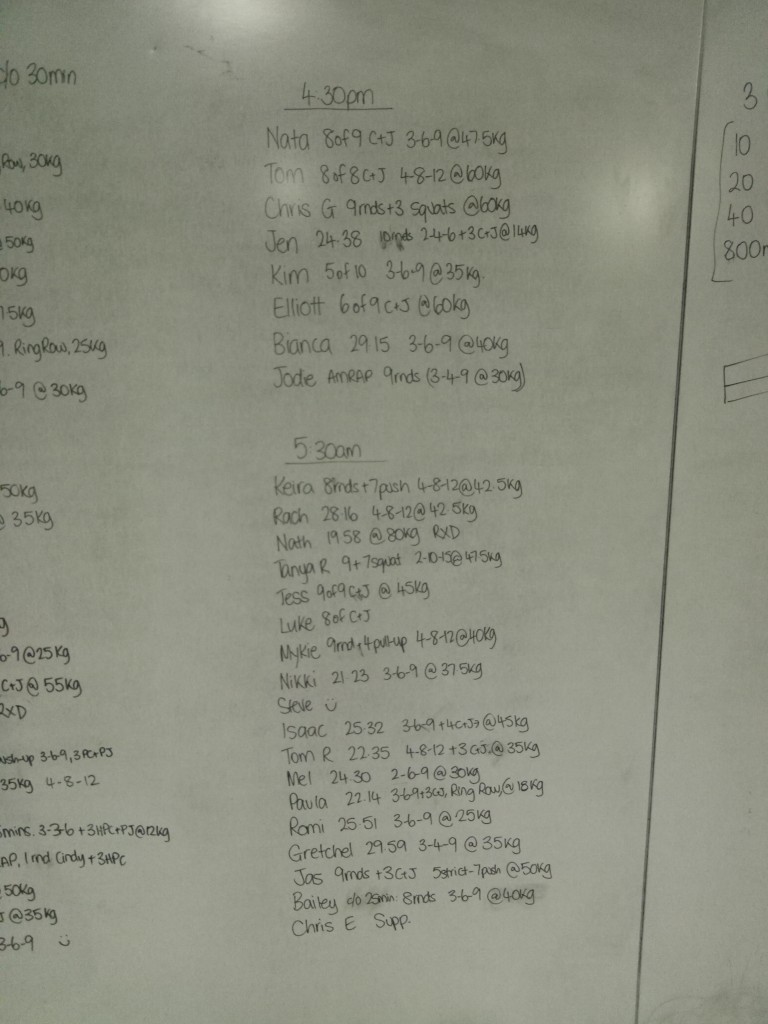 c/o 30min
Row, 30kg
40kg
50kg
0kg
15kg
9. Ring Row, 25kg
6-9 @ 30kg
50kg
@ 35kg
g
6-9 @ 25kg
C+J @ 55kg
RXD
push-up 3-6-9, 3PC+PJ
35kg 4-8-12
5mins. 3-3-6 + 3HPC+PJ@12kg
AP, 1 rnd Cindy + 3HPC
50kg
J @ 35kg
3-6-9 ü
4.30pm
Nata 8 of 9 C+J 3-6-9 @ 47.5kg
Tom 8 of 8 C+J 4-8-12 @ 60kg
Chris G 9rnds + 3 squats @ 60kg
Jen 24.38 2-4-6 + 3 C+J @ 14kg
Kim 5 of 10 3-6-9 @ 35kg.
Elliott 6 of 9 C+J @ 60kg
Bianca 29.15 3-6-9 @ 40kg
Jodie AMRAP 9rnds (3-4-9 @ 30kg)
5.30am
Keira 8rnds + 7push 4-8-12 @ 42.5kg
Rach 28.16 4-8-12 @ 42.5kg
Nath 19.58 @ 80kg RXD
Tanya R 9 + 7squat 2-10-15 @ 47.5kg
Tess 9 of 9 C+J @ 45kg
Luke 8 of C+J
Mykie 9rnd + 4pull-up 4-8-12 @ 40kg
Nikki 21.23 3-6-9 @ 37.5kg
Steve ü
Isaac 25.32 3-6-9 + 4C+J @ 45kg
Tom R 22.35 4-8-12 + 3 C+J @ 35kg
Mel 24.30 2-6-9 @ 30kg
Paula 22.14 3-6-9 + 3C+J, Ring Row, @ 18kg
Romi 25.51 3-6-9 @ 25kg
Gretchel 29.59 3-4-9 @ 35kg
Jas 9rnds + 3 C+J 5strict-7push @ 50kg
Bailey c/o 25min: 8rnds 3-6-9 @ 40kg
Chris E Supp.
3
10
20
40
800m